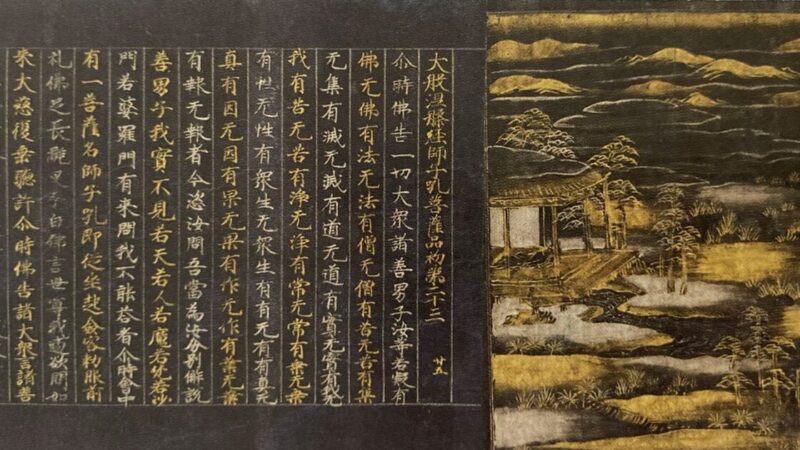 大般涅槃經師子吼菩薩品初第二十三 廿五
尒時佛告一切大衆諸善男子汝等若疑有
佛无佛有法无法有僧无僧有苦无苦有集
无集有滅无滅有道无道有實无實有我无
我有苦无苦有淨无淨有常无常有乗无乗
有性无性有衆生无衆生有有无有有真无
真有因无因有果无果有作无作有業无業
有報无報者今恣汝問吾當為汝分別解説
善男子我實不見若天若人若魔若梵若沙
門若婆羅門有来問我不能荅者尒時會中
有一菩薩名師子吼即従坐起斂容整服前
礼佛足長跪叉手白佛言世尊我適欲問如
来大慈復垂聽許尒時佛告諸大衆言諸善